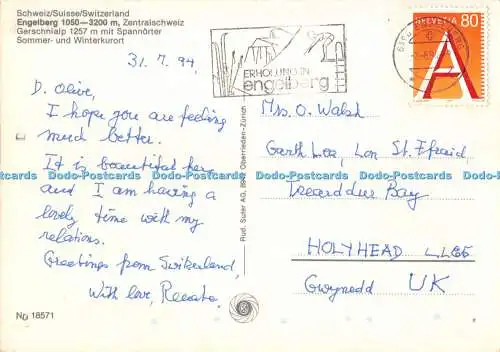 Schweiz/Suisse/Switzerland
Engelberg 1050—3200 m, Zentralschweiz
Gerschnialp 1257 m mit Spannörter
Sommer- und Winterkurort
31. 7. 94,
D. Olive,
I hope you are feeling
much better.
It is beautiful here
and I am having a
lovely time with my
relations.
Greetings from Switzerland,
With love, Renate.
No 18571
Rud. Suter AG, 8942 Oberrieden-Zürich
ERHOLUNG IN
engelberg
HELVETIA 80
A
Mrs. O. Walsh
Garth Loa, Lon St. Ffraid,
Trearddur Bay
HOLYHEAD LL65
Gwynedd UK
Dodo-Postcards Dodo-Postcards Dodo-Postcards Dodo-Postcards Dodo-Postcards